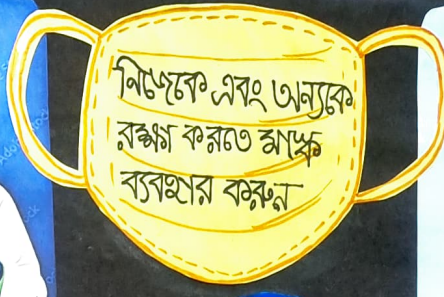 নিজেকে এবং অন্যকে
রক্ষা করতে মাস্ক
ব্যবহার করুন